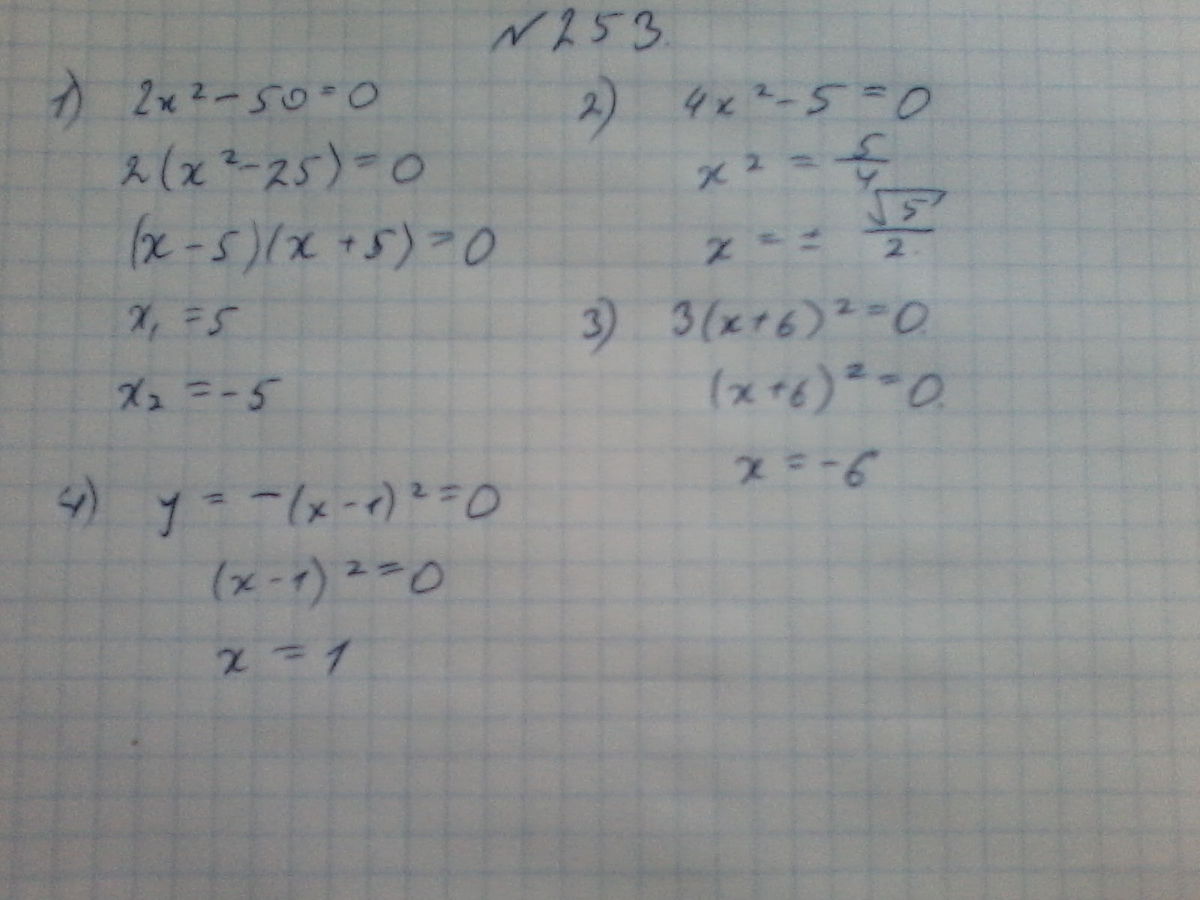 №253.
1) 2x² - 50 = 0
2(x² - 25) = 0
(x - 5)(x + 5) = 0
x₁ = 5
x₂ = -5
2) 4x² - 5 = 0
x² = 5/4
x = ± √5/2
3) 3(x + 6)² = 0
(x + 6)² = 0
x = -6
4) y = -(x - 1)² = 0
(x - 1)² = 0
x = 1